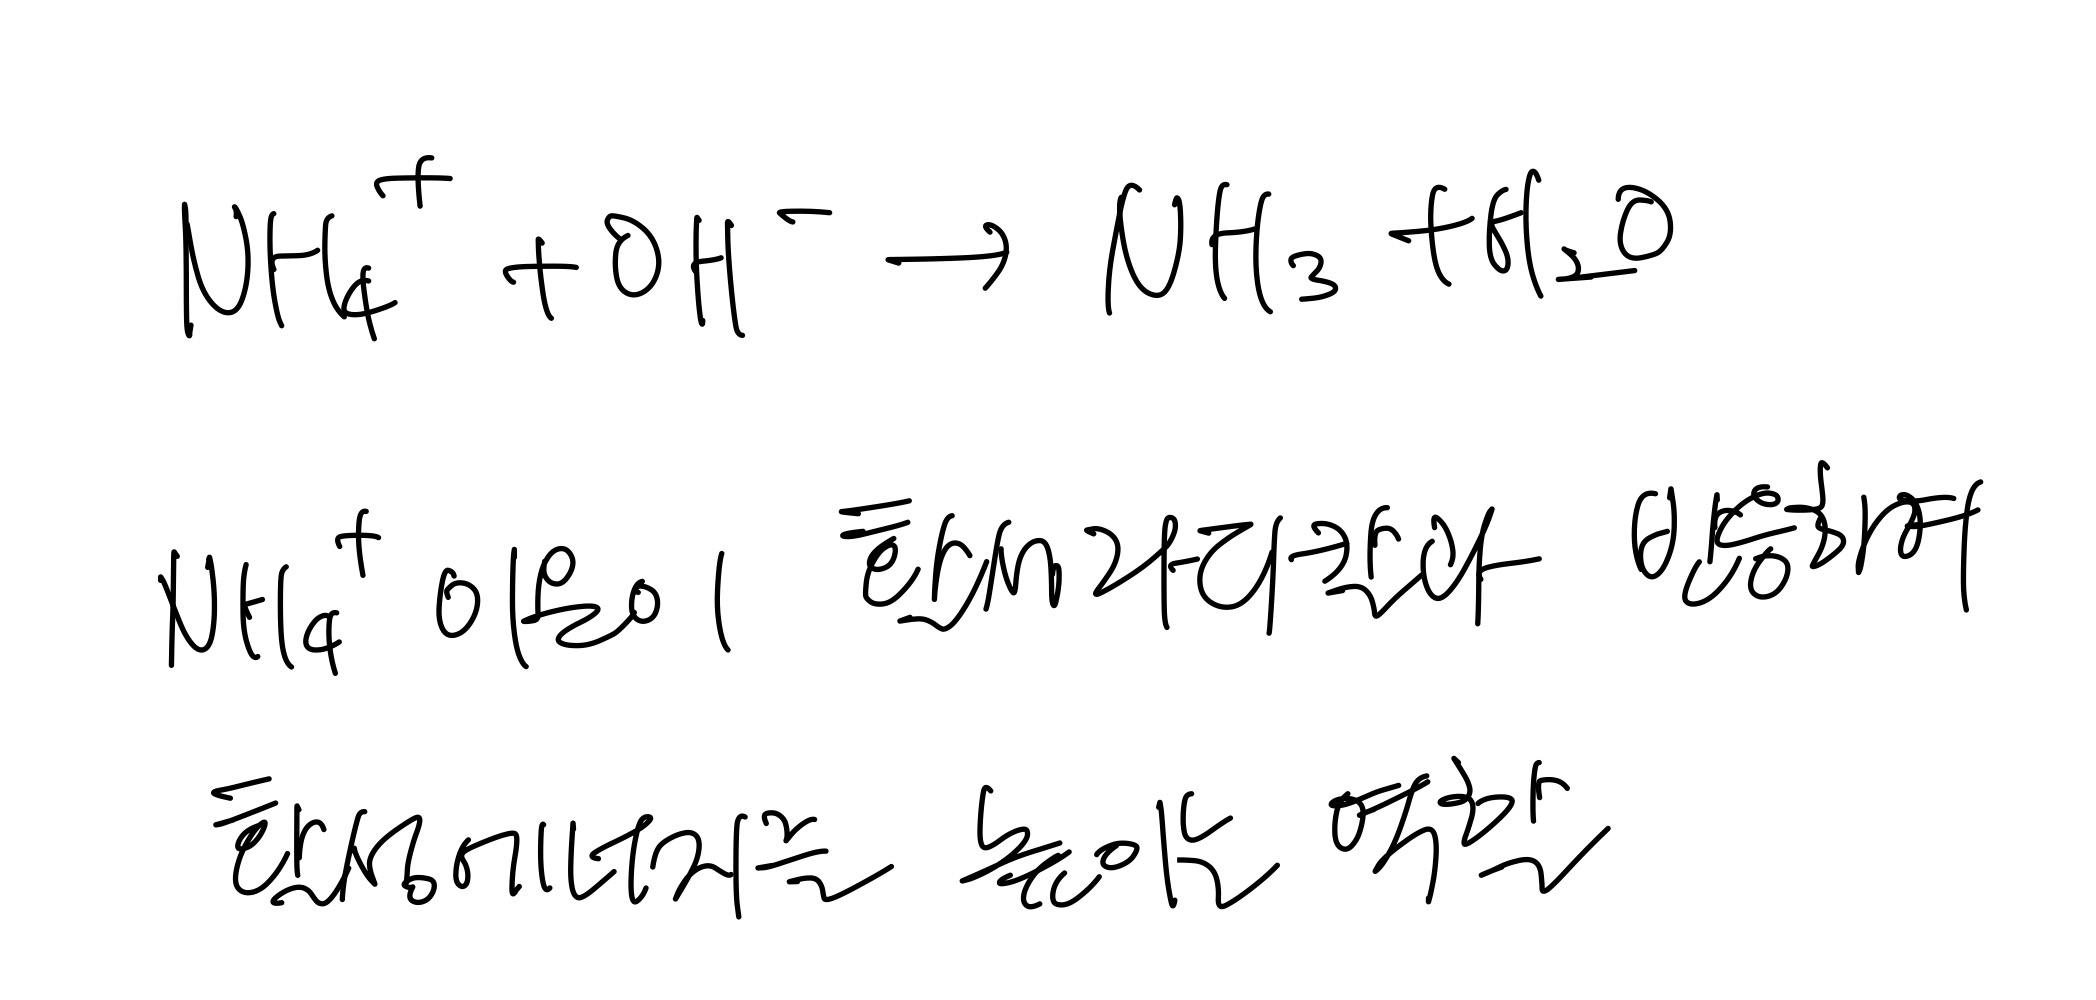 NH₄⁺ + OH⁻ → NH₃ + H₂O
NH₄⁺ 이온이 활성 라디칼과 반응하여
활성에너지를 높이는 역할